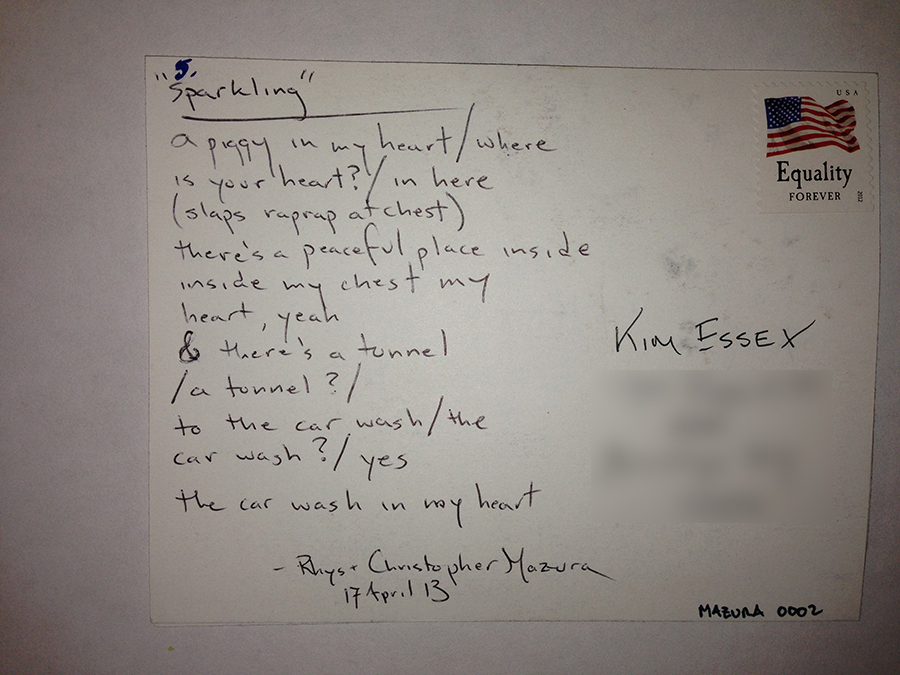 5.
"Sparkling"
a piggy in my heart/where
is your heart?/in here
(slaps raprap at chest)
there's a peaceful place inside
inside my chest my
heart, yeah
& there's a tunnel
/a tunnel?/
to the car wash/the
car wash?/yes
the car wash in my heart
- Rhys + Christopher Mazura
17 April 13
USA
Equality
FOREVER
2012
KIM ESSEX
MAZURA 0002